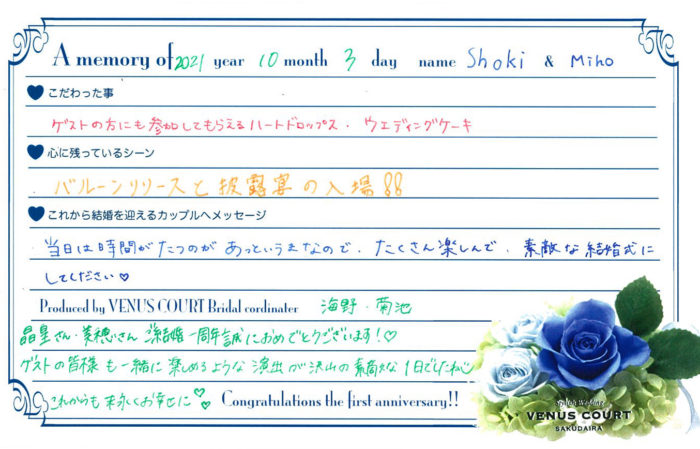 A memory of 2021 year 10 month 3 day name Shoki & Miho
こだわった事
ゲストの方にも参加してもらえるハートドロップス・ウエディングケーキ
心に残っているシーン
バルーンリリースと披露宴の入場!!
これから結婚を迎えるカップルへメッセージ
当日は時間がたつのがあっというまなので、たくさん楽しんで、素敵な結婚式に
してください♡
Produced by VENUS COURT Bridal cordinater 海野・菊池
晶皇さん・美穂さん ご結婚一周年誠におめでとうございます!♡
ゲストの皆様も一緒に楽しめるような演出が沢山の素敵な1日でしたね
これからも末永くお幸せに♡♡ Congratulations the first anniversary!!
VENUS COURT
SAKUDAIRA